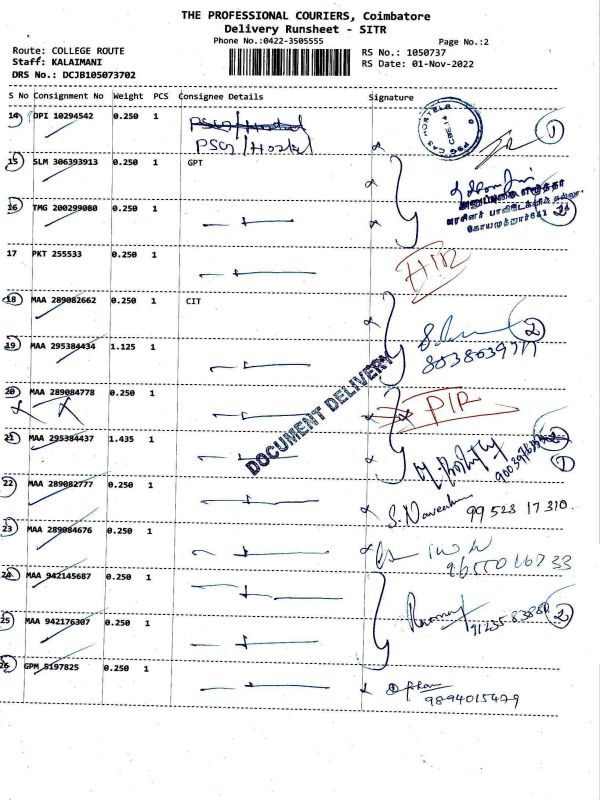 THE PROFESSIONAL COURIERS, Coimbatore
Delivery Runsheet - SITR
Phone No.:0422-3505555
Page No.:2
Route: COLLEGE ROUTE
RS No.: 1050737
Staff: KALAIMANI
RS Date: 01-Nov-2022
DRS No.: DCJB105073702
S No Consignment No Weight PCS Consignee Details Signature
14 DPI 10294542 0.250 1
PSG/Hostel
PSG CAS HOSTELS
CBE-14
1
15 SLM 306393913 0.250 1 GPT
அனுப்புகை எழுத்தர்
16 TMG 200299080 0.250 1
2
17 PKT 255533 0.250 1
18 MAA 289082662 0.250 1 CIT
2
19 MAA 295384434 1.125 1
DOCUMENT DELIVERY
20 MAA 289084778 0.250 1
21 MAA 295384437 1.435 1
1
22 MAA 289082777 0.250 1
99523 17310
23 MAA 289084676 0.250 1
24 MAA 942145687 0.250 1
2
25 MAA 942176307 0.250 1
26 GPM 5197825 0.250 1
9894015479